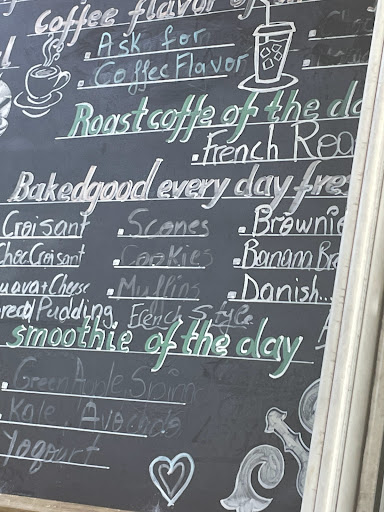 Coffee flavor of
Ask for
Coffee Flavor
Roast coffe of the da
French Roa
Bakedgood every day fre
Croisant
Scones
Brownie
ChocCroisant
Cookies
Banana Br
uava+Cheese
Muffins
Danish...
read/Pudding French Style
smoothie of the day
Green Apple
Kale, Avocado
Yogourt